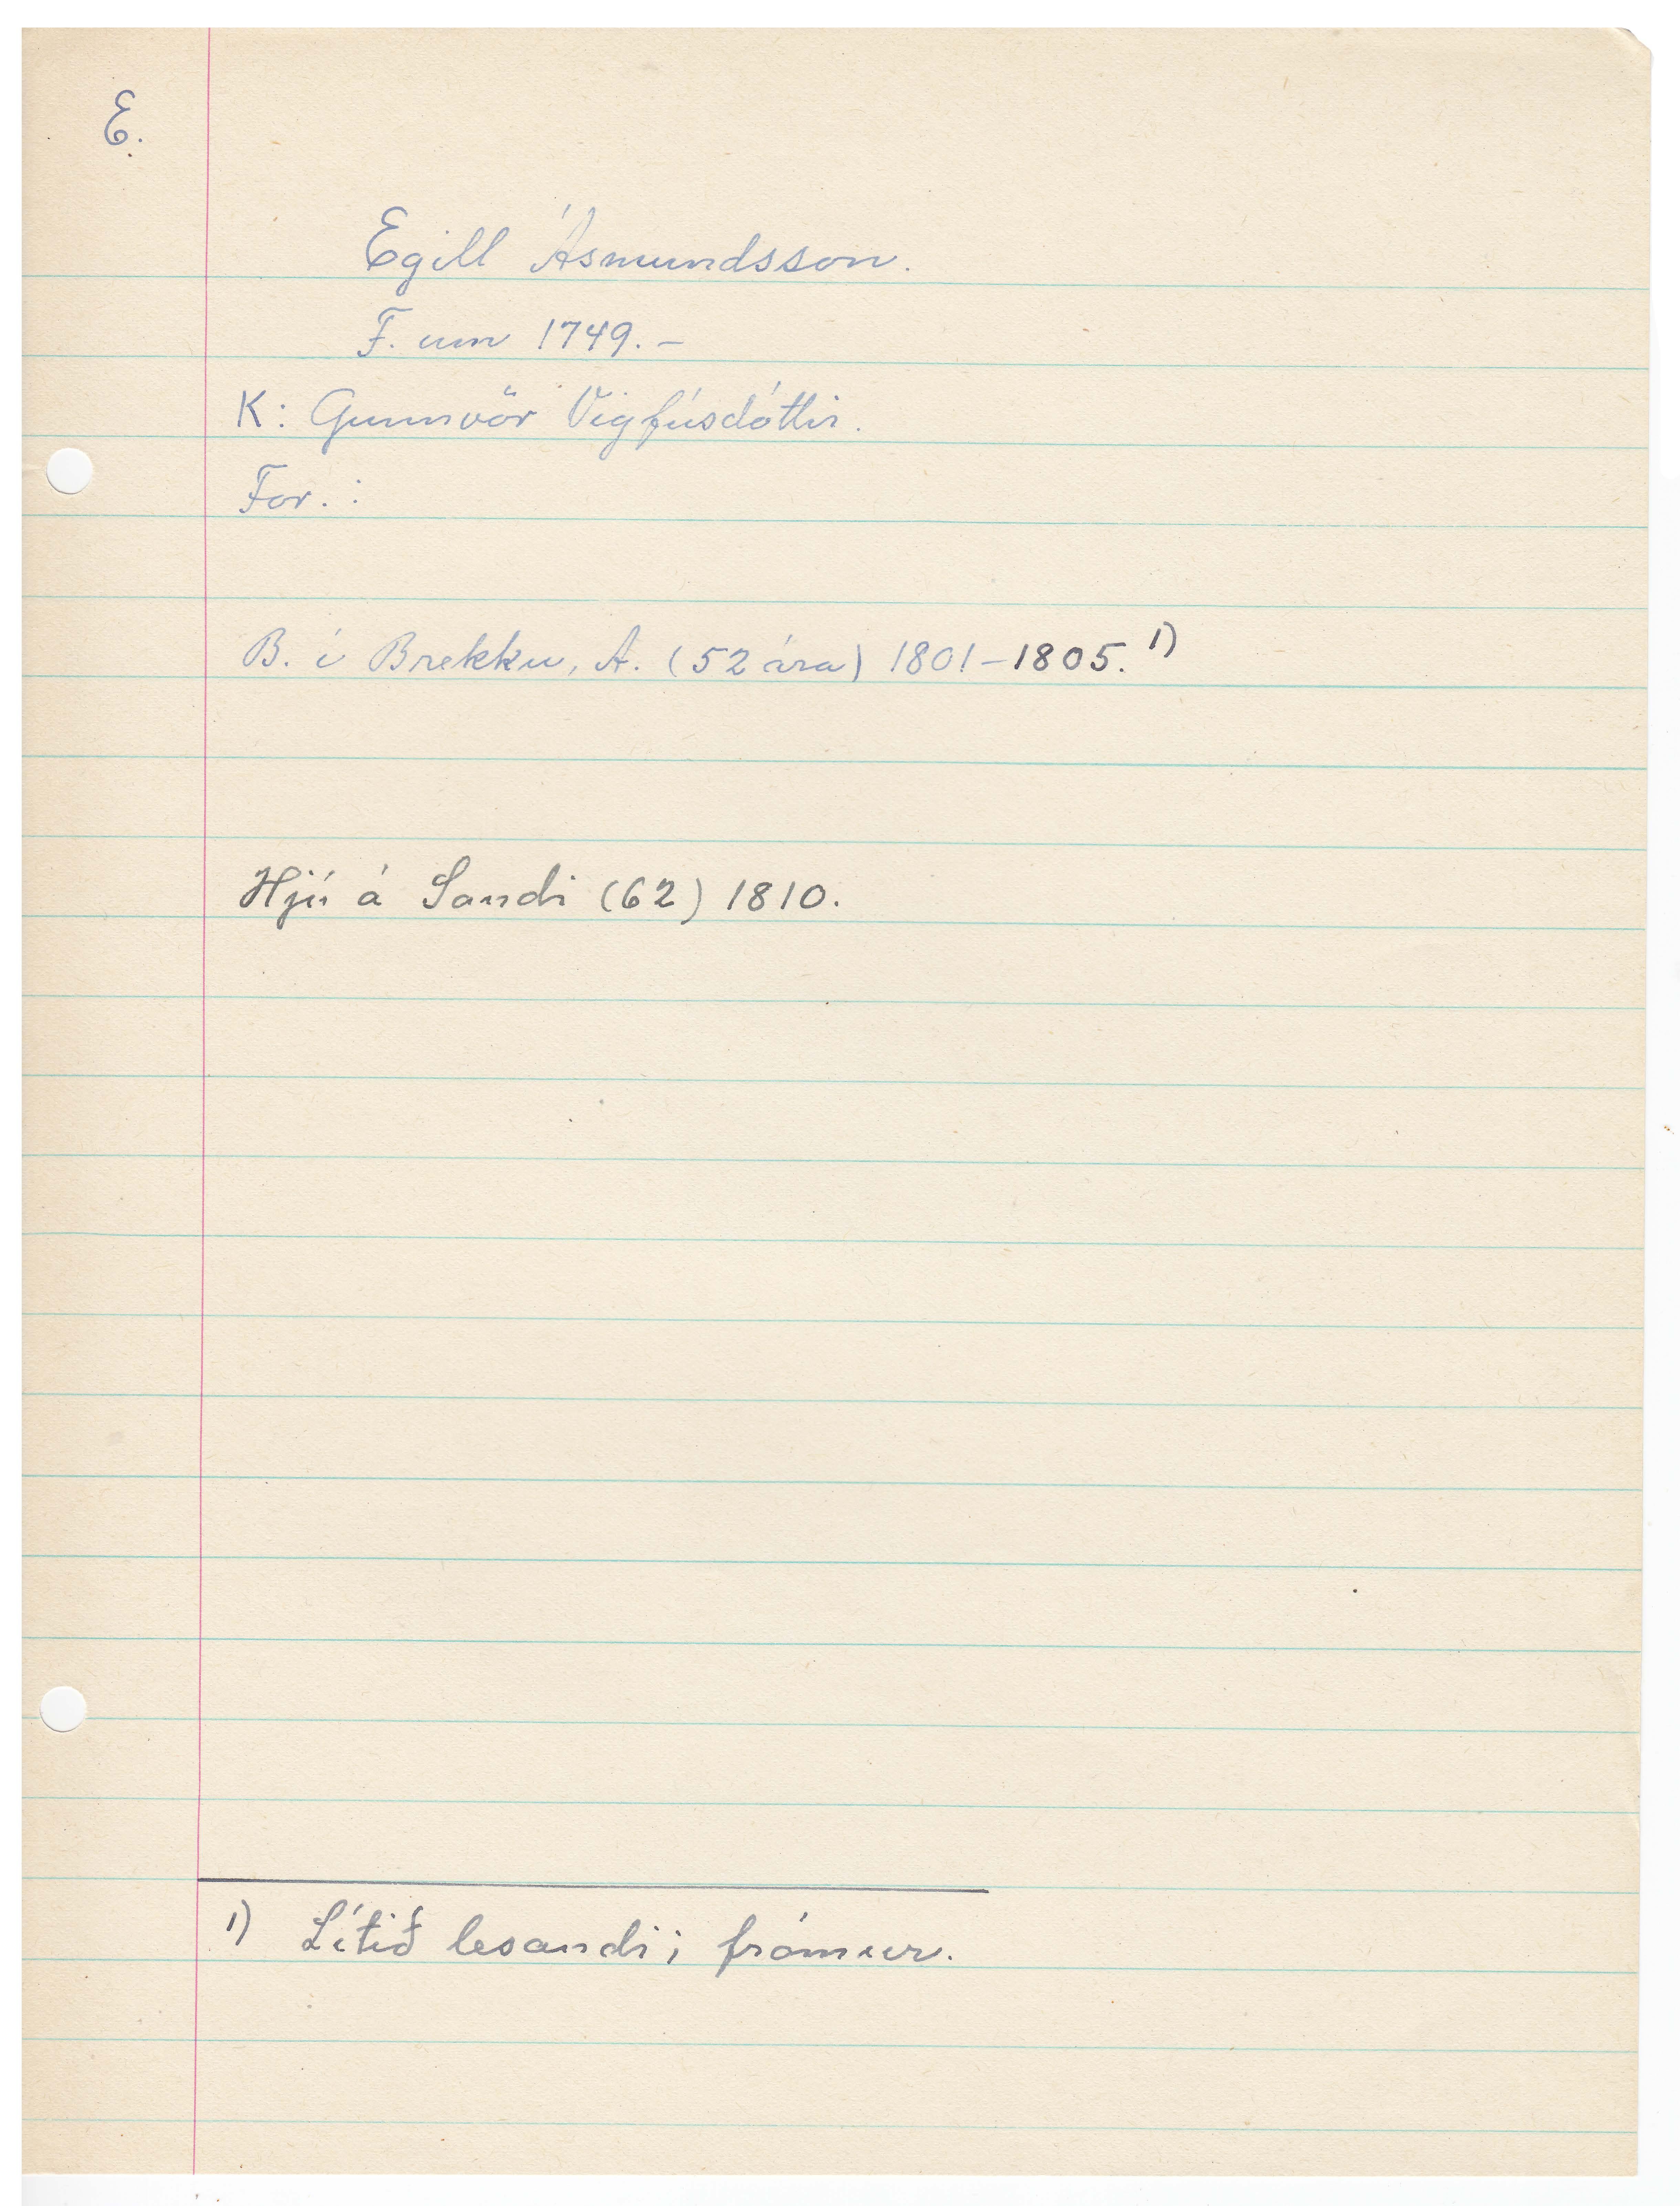 E.
Egill Ásmundsson.
F. um 1749. –
K: Gunnvör Vigfúsdóttir.
For. :
B. í Brekku, A. (52 ára) 1801–1805. 1)
Hjú á Sandi (62) 1810.
1) Lítið lesandi; frómur.